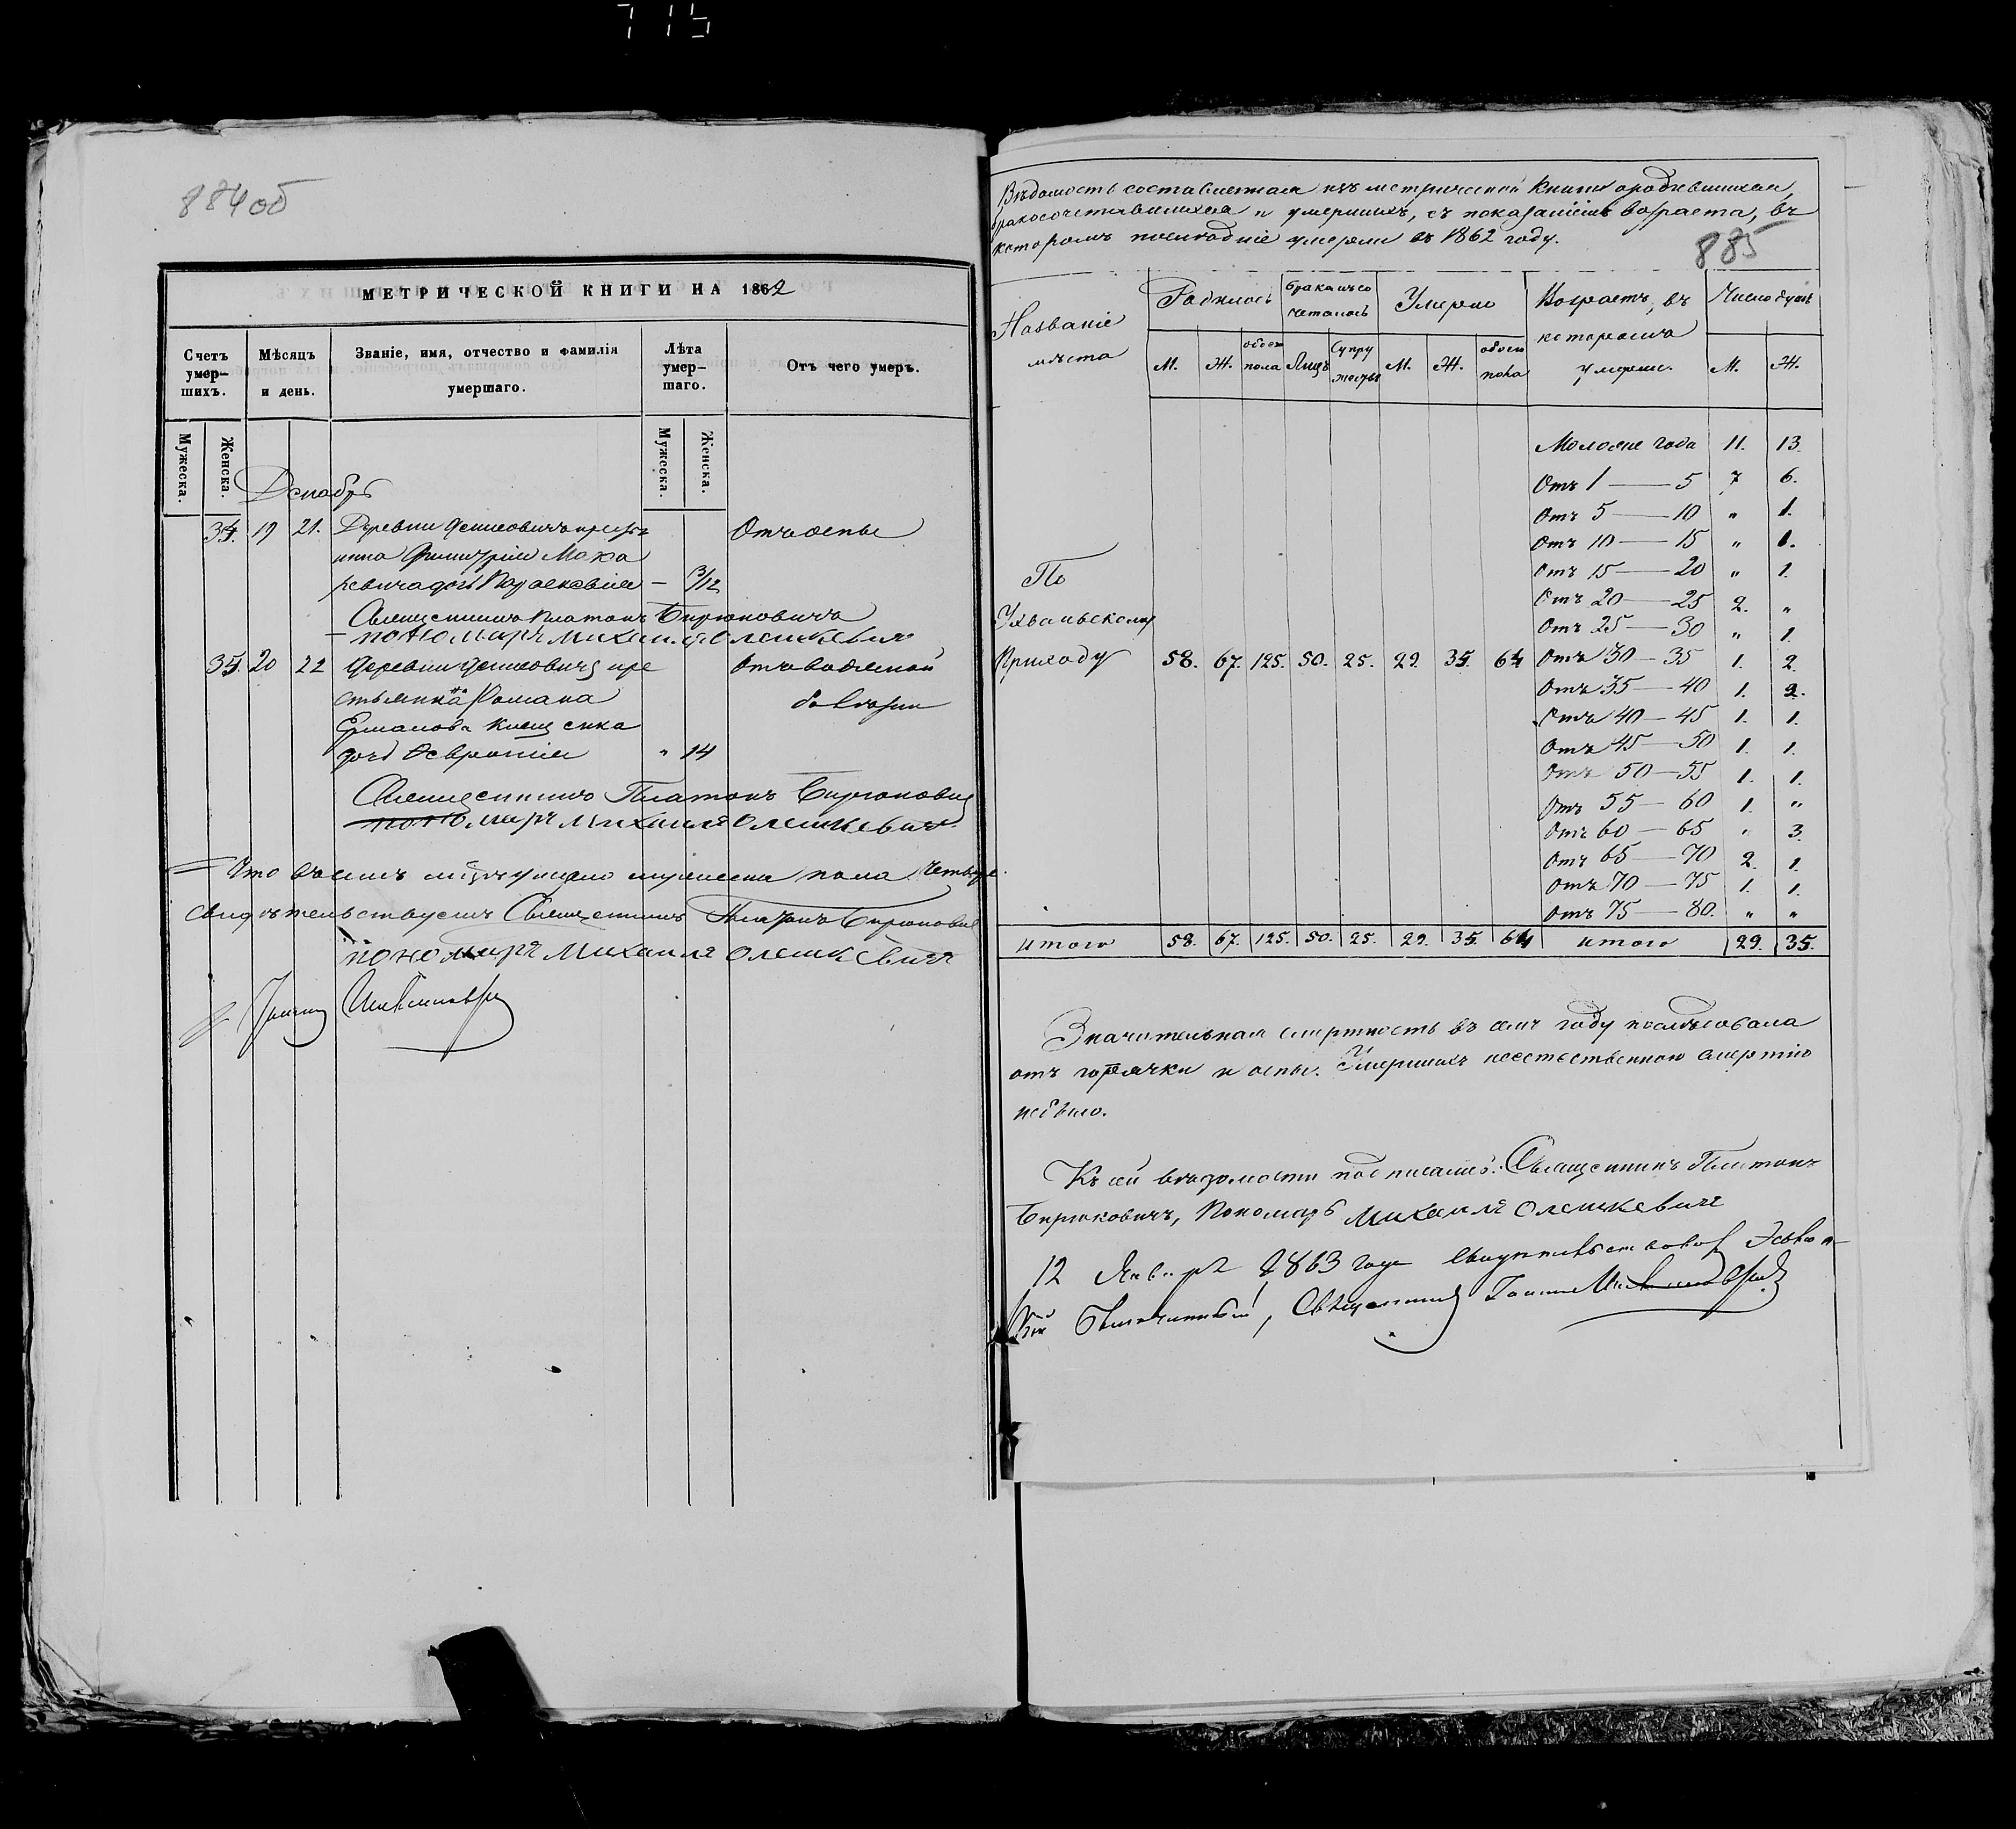 884об
МЕТРИЧЕСКОЙ КНИГИ НА 1862
Счетъ умер–шихъ.
Мѣсяцъ и день.
Званіе, имя, отчество и фамилія умершаго.
Лѣта умер–шаго.
Отъ чего умеръ.
Мужеска.
Женска.
Мужеска.
Женска.
Декабрь
34. 19 21. Деревни Денисовичъ
Мака
ревича дочь Параскевія — 3/12
Отъ оспы
Священникъ Платонъ Бирюковичъ
пономарь Михаилъ Олешкевичъ
35. 20 22 Деревни Денисовичъ кре
стьянина Романа
Ермакова
дочь Февронія " 14
Отъ водяной
болѣзни
Священникъ Платонъ Бирюкович
пономарь Михаилъ Олешкевичъ
Что въ семъ умерло мужеска пола
свидѣтельствуемъ Священникъ Платонъ Бирюкович
пономарь Михаилъ Олешкевичъ
Ведомость составленная изъ метрической книги о родившихся,
бракосочетавшихся и умершихъ, съ показаніемъ возраста, въ
которомъ послѣдніе умерли въ 1862 году.
885
Названіе мѣста
Родилось
бракомъ со четалось
Умерло
Возрастъ, въ которомъ умерли.
Число душъ
М. Ж. обоего пола Лицъ Супру жествъ М. Ж. обоего пола М. Ж.
Моложе года 11. 13.
Отъ 1 — 5 7 6.
Отъ 5 — 10 " 1.
Отъ 10 — 15 " 1.
Отъ 15 — 20 " 1.
Отъ 20 — 25 2. "
Отъ 25 — 30 " 1.
По
Ухвальскому
Приходу 58. 67. 125. 50. 25. 29. 35. 64 Отъ 30 — 35 1. 2.
Отъ 35 — 40 1. 2.
Отъ 40 — 45 1. 1.
Отъ 45 — 50 1. 1.
Отъ 50 — 55 1. 1.
Отъ 55 — 60 1. "
Отъ 60 — 65 " 3.
Отъ 65 — 70 2. 1.
Отъ 70 — 75 1. 1.
Отъ 75 — 80. " "
итого 58. 67. 125. 50. 25. 29. 35. 64 итого 29. 35.
Значительная смертность въ семъ году послѣдовала
отъ горячки и оспы. Умершихъ неестественною смертію
небыло.
Къ сей вѣдомости подписались: Священникъ Платонъ
Бирюковичъ, Пономарь Михаилъ Олешкевичъ
12 Января 1863 года свидѣтельствовалъ
Благочинный, Священникъ Іоаннъ